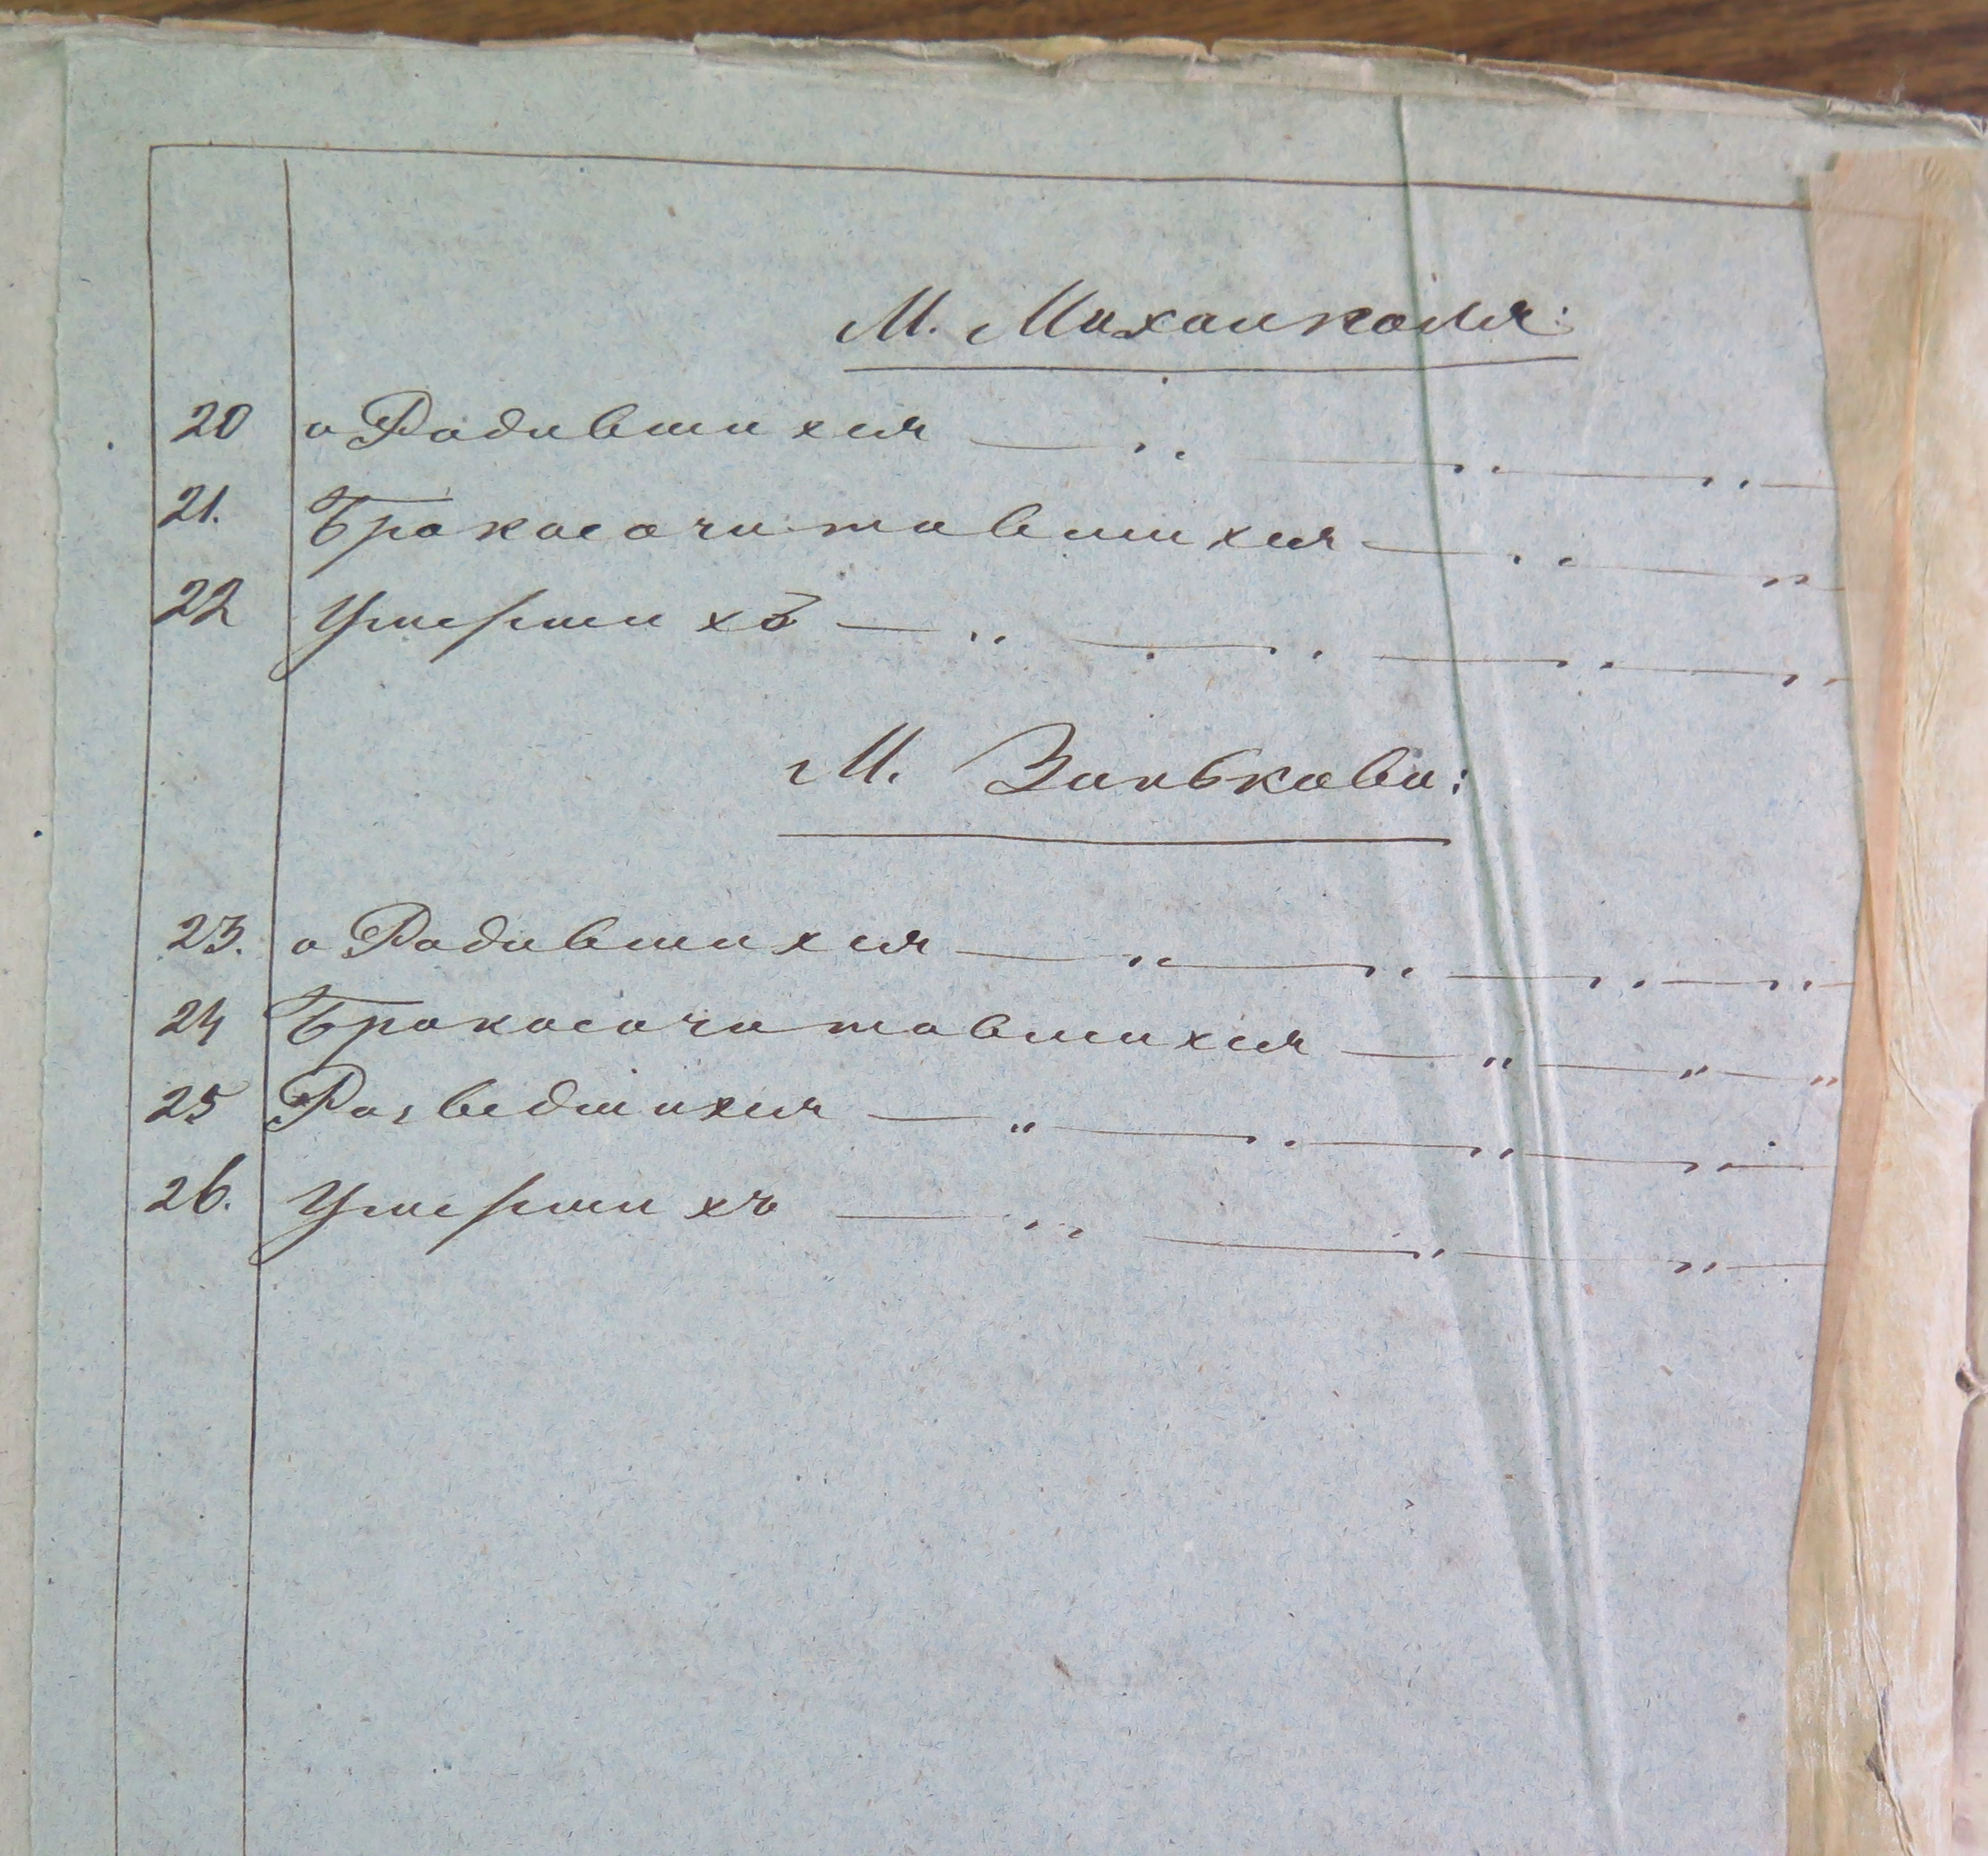 М. Михамполя:
20 о Родившихся — „ — „ — „ —
21. Бракосочитавшихся — „ — „
22 Умершихъ — „ — „ — „ — „
М. Зинькова:
23. о Родившихся — „ — „ — „ — „ —
24 Бракосочитавшихся — „ — „ — „
25 Разведшихся — „ — „ — „ — „ —
26. Умершихъ — „ — „ — „ —